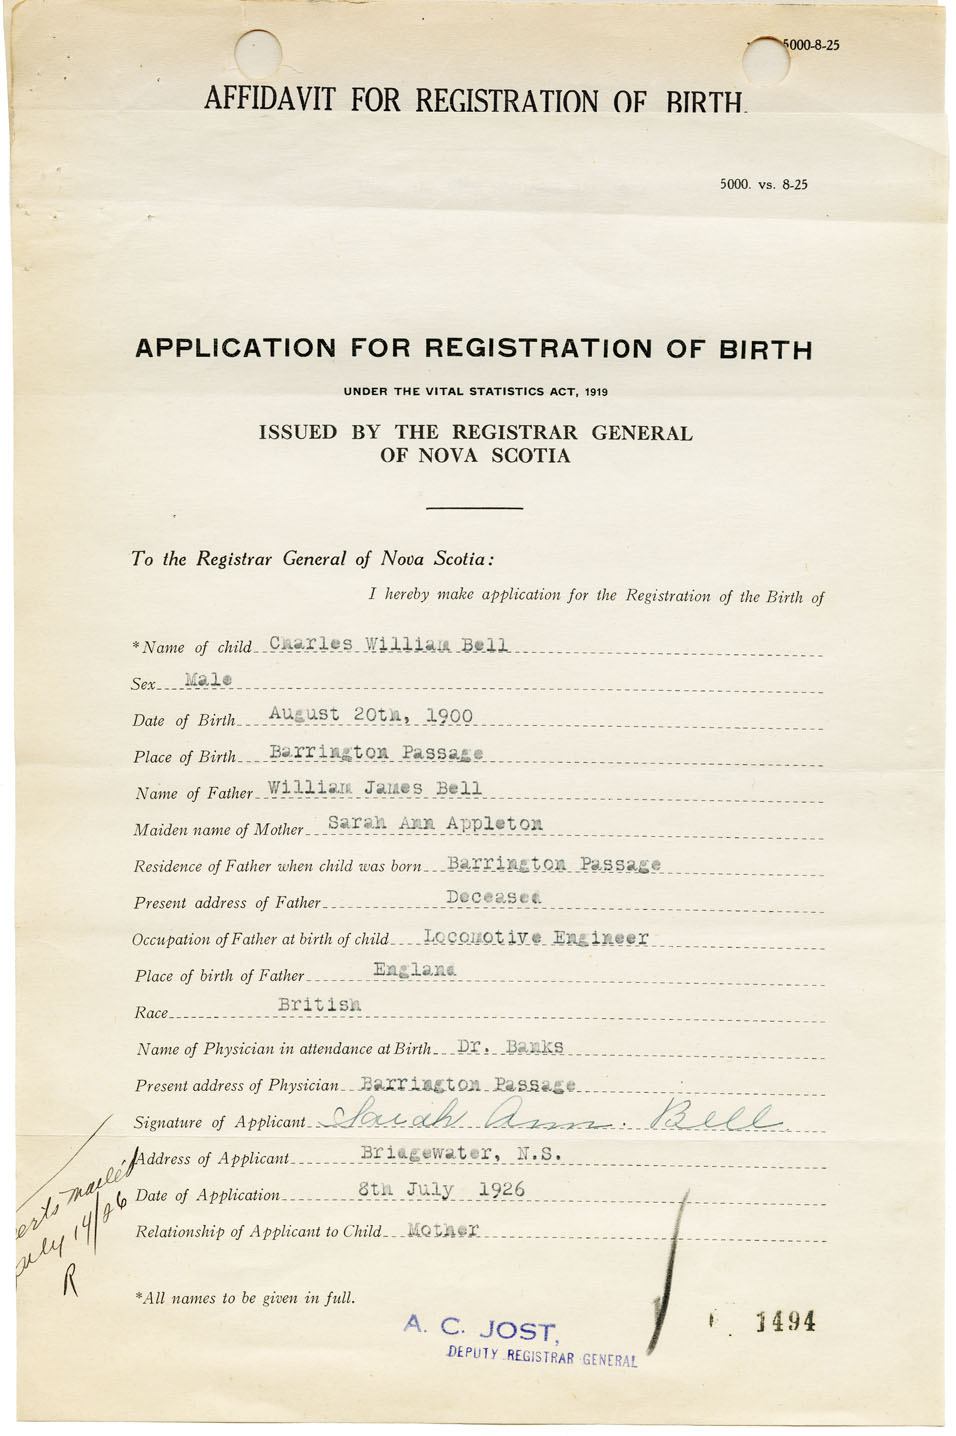 5000-8-25
AFFIDAVIT FOR REGISTRATION OF BIRTH.
5000. vs. 8-25
APPLICATION FOR REGISTRATION OF BIRTH
UNDER THE VITAL STATISTICS ACT, 1919
ISSUED BY THE REGISTRAR GENERAL
OF NOVA SCOTIA
To the Registrar General of Nova Scotia:
I hereby make application for the Registration of the Birth of
*Name of child Charles William Bell
Sex Male
Date of Birth August 20th, 1900
Place of Birth Barrington Passage
Name of Father William James Bell
Maiden name of Mother Sarah Ann Appleton
Residence of Father when child was born Barrington Passage
Present address of Father Deceased
Occupation of Father at birth of child Locomotive Engineer
Place of birth of Father England
Race British
Name of Physician in attendance at Birth Dr. Banks
Present address of Physician Barrington Passage
Signature of Applicant Sarah Ann. Bell.
Address of Applicant Bridgewater, N.S.
Date of Application 8th July 1926
Relationship of Applicant to Child Mother
erts mailed
July 14/26
R
*All names to be given in full.
A. C. JOST,
DEPUTY REGISTRAR GENERAL
1494